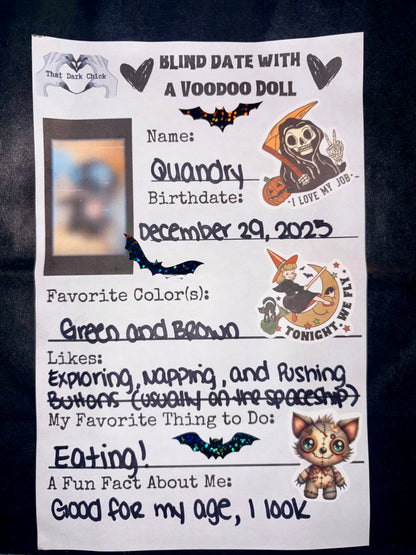 That Dark Chick
BLIND DATE WITH
A VOODOO DOLL
Name:
Quandry
I LOVE MY JOB
Birthdate:
December 29, 2025
Favorite Color(s):
Green and Brown
TONIGHT WE FLY
Likes:
Exploring, Napping, and Pushing
Buttons (usually on the spaceship)
My Favorite Thing to Do:
Eating!
A Fun Fact About Me:
Good for my age, I look